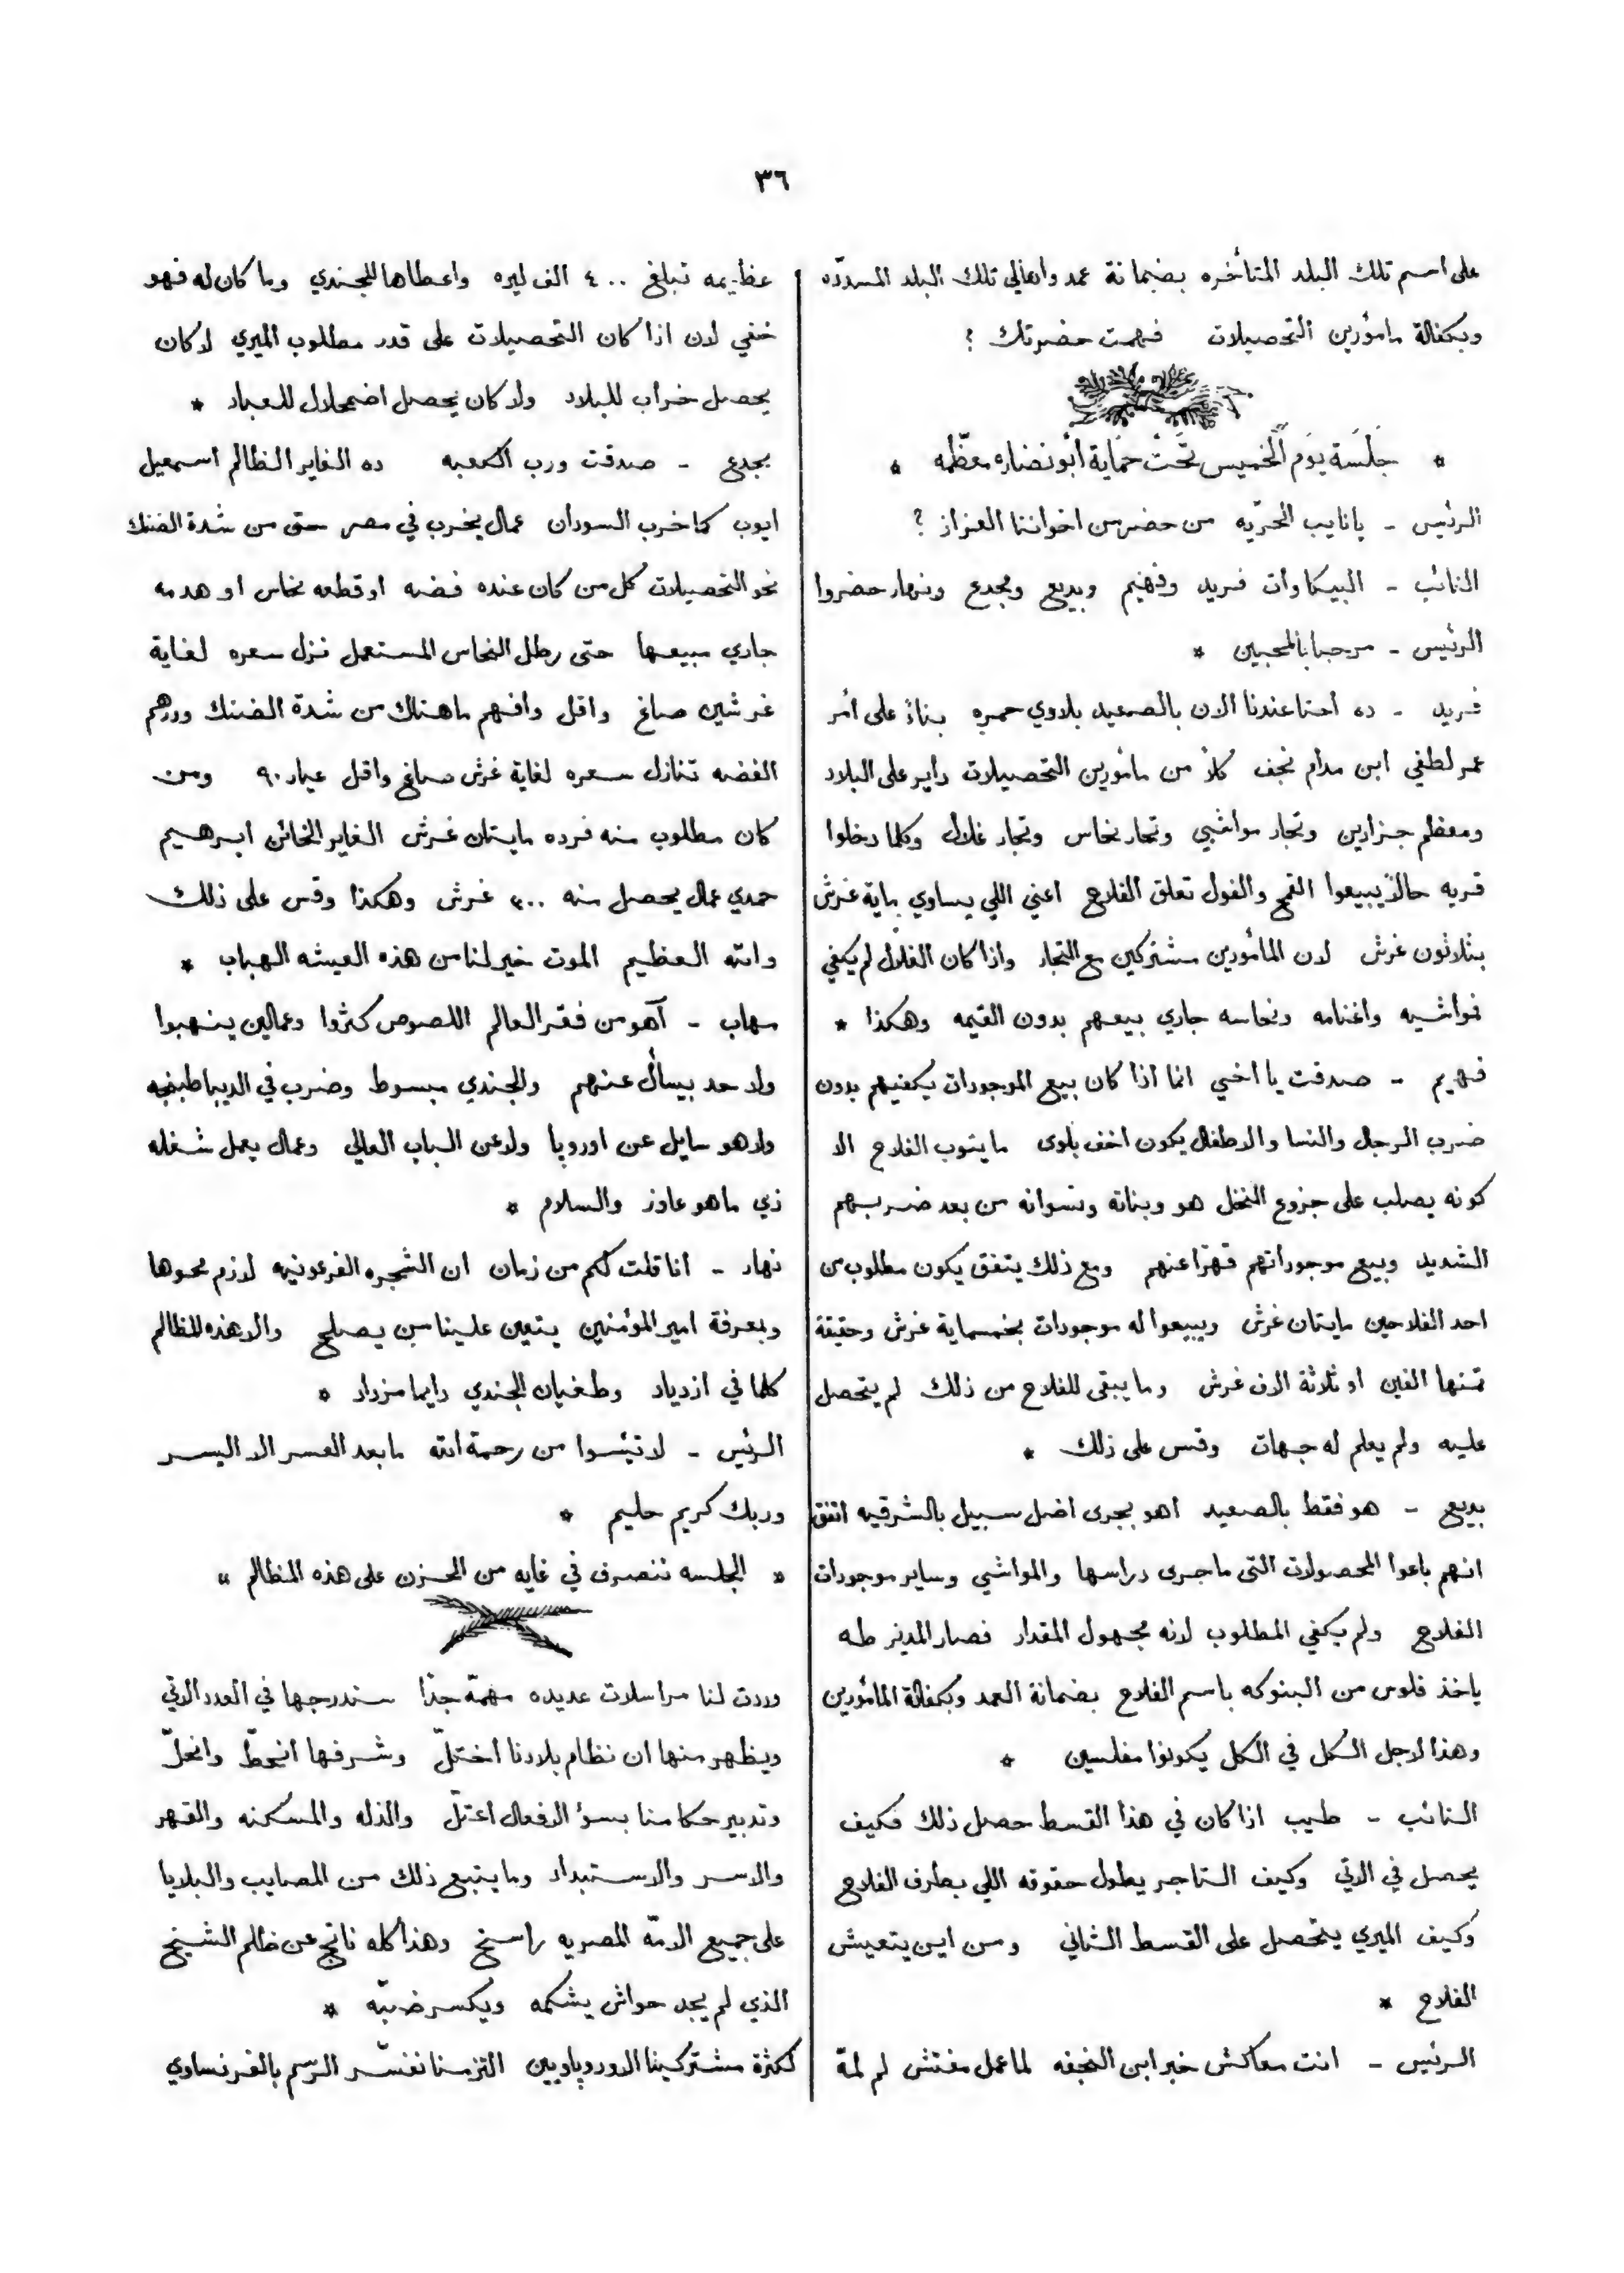 ٣٦
على اسم تلك البلد المتأخره بضمانة عمد واهالي تلك البلد المسدّده
وبكفالة مأمورين التحصيلات فهمت حضرتك ؟
* جلسة يوم الخميس تحت حماية أبو نضاره معظّمه *
الرئيس - يا نايب الحرّيه من حضر من اخواننا العزاز ؟
النائب - البيكاوات فريد وفهيم وبديع ومجدع ونهار حضروا
الرئيس - مرحبا بالمحبين *
فريد - ده احنا عندنا الان بالصعيد بلاوي حمره بناءً على أمر
عمر لطفي ابن مدام نجف كلاً من مأمورين التحصيلات داير على البلاد
ومعظم جزارين وتجار مواشي وتجار نحاس وتجار غلال وكلما دخلوا
قريه حالاً يبيعوا القمح والفول تعلق الفلاح اعني اللي يساوي ماية غرش
بثلاثون غرش لان المأمورين مشتركين مع التجار واذا كان الغلال لم يكفي
فمواشيه واغنامه ونحاسه جاري بيعهم بدون القيمه وهكذا *
فهيم - صدقت يا اخي انما اذا كان بيع الموجودات يكفيهم بدون
ضرب الرجال والنسا والاطفال يكون اخف بلوى ما ينوب الفلاح الا
كونه يصلب على جزوع النخل هو وبناته ونسوانه من بعد ضربهم
الشديد وبيع موجوداتهم قهرًا عنهم ومع ذلك يتفق يكون مطلوب من
احد الفلاحين مايتان غرش ويبيعوا له موجودات بخمسماية غرش وحقيقة
تمنها الفين او ثلاثة الاف غرش وما يبقى للفلاح من ذلك لم يتحصل
عليه ولم يعلم له جهات وقس على ذلك *
بديع - هو فقط بالصعيد اهو بجرى اضل سبيل بالشرقيه اتفق
انهم باعوا المحصولات التى ما جرى دراسها والمواشي وساير موجودات
الفلاح ولم يكفي المطلوب لانه مجهول المقدار فصار المدير طه
ياخذ فلوس من البنوكه باسم الفلاح بضمانة العمد وبكفالة المأمورين
وهذا لاجل الكل في الكل يكونوا مفلسين *
النائب - طيب اذا كان في هذا القسط حصل ذلك فكيف
يحصل في الاتي وكيف التاجر يطول حقوقه اللي بطرف الفلاح
وكيف الميري يتحصل على القسط الثاني ومن اين يتعيش
الفلاح *
الرئيس - انت معاكش خبر ابن النجفه لما عمل مفتش لم لمة
عظيمه تبلغ ٤٠٠ الف ليره واعطاها للجندي وما كان له فهو
خفي لان اذا كان التحصيلات على قدر مطلوب الميري لا كان
يحصل خراب للبلاد ولا كان يحصل اضمحلال للعباد *
مجدع - صدقت ورب الكعبه ده الغاير الظالم اسمعيل
ايوب كما خرب السودان عمال يخرب في مصر حتى من شدة الضنك
نحو التحصيلات كل من كان عنده فضه او قطعه نحاس او هدمه
جاري مبيعها حتى رطل النحاس المستعمل نزل سعره لغاية
غرشين صاغ واقل وافهم ما هناك من شدة الضنك ودرهم
الفضه تنازل سعره لغاية غرش صاغ واقل عيار ٩٠ ومن
كان مطلوب منه فرده مايتان غرش الغاير الخائن ابرهيم
حمدي عمال يحصل منه ٣٠٠ غرش وهكذا وقس على ذلك
والله العظيم الموت خير لنا من هذه العيشه الهباب *
مهاب - آهو من فقر العالم اللصوص كثروا وعمالين ينهبوا
ولا حد بيسأل عنهم والجندي مبسوط وضرب في الديبا طبنجه
ولا هو سايل عن اوروبا ولا عن الباب العالي وعمال يعمل شغله
زي ما هو عاوز والسلام *
نهار - انا قلت لكم من زمان ان الشجره الفرعونيه لازم محوها
وبمعرفة امير المؤمنين يتعين علينا من يصلح والا هذه المظالم
كلما في ازدياد وطغيان الجندي دايما مزداد *
الرئيس - لا تيئسوا من رحمة الله ما بعد العسر الا اليسر
وربك كريم حليم *
« الجلسه تنصرف في غايه من الحزن على هذه المظالم »
وردت لنا مراسلات عديده مهمّة جدًّا سندرجها في العدد الاتي
ويظهر منها ان نظام بلادنا اختلّ وشرفها انحطّ وانحلّ
وتدبير حكامنا بسؤ الافعال اعتلّ والذله والمسكنه والقهر
والاسر والاستبداد وما يتبع ذلك من المصايب والبلايا
على جميع الامّة المصريه راسخ وهذا كله ناتج عن ظالم الشيخ
الذي لم يجد حواش يشكمه ويكسر ضبّه *
لكثرة مشتركينا الاوروپاويين التزمنا نفسّر الرسم بالفرنساوي